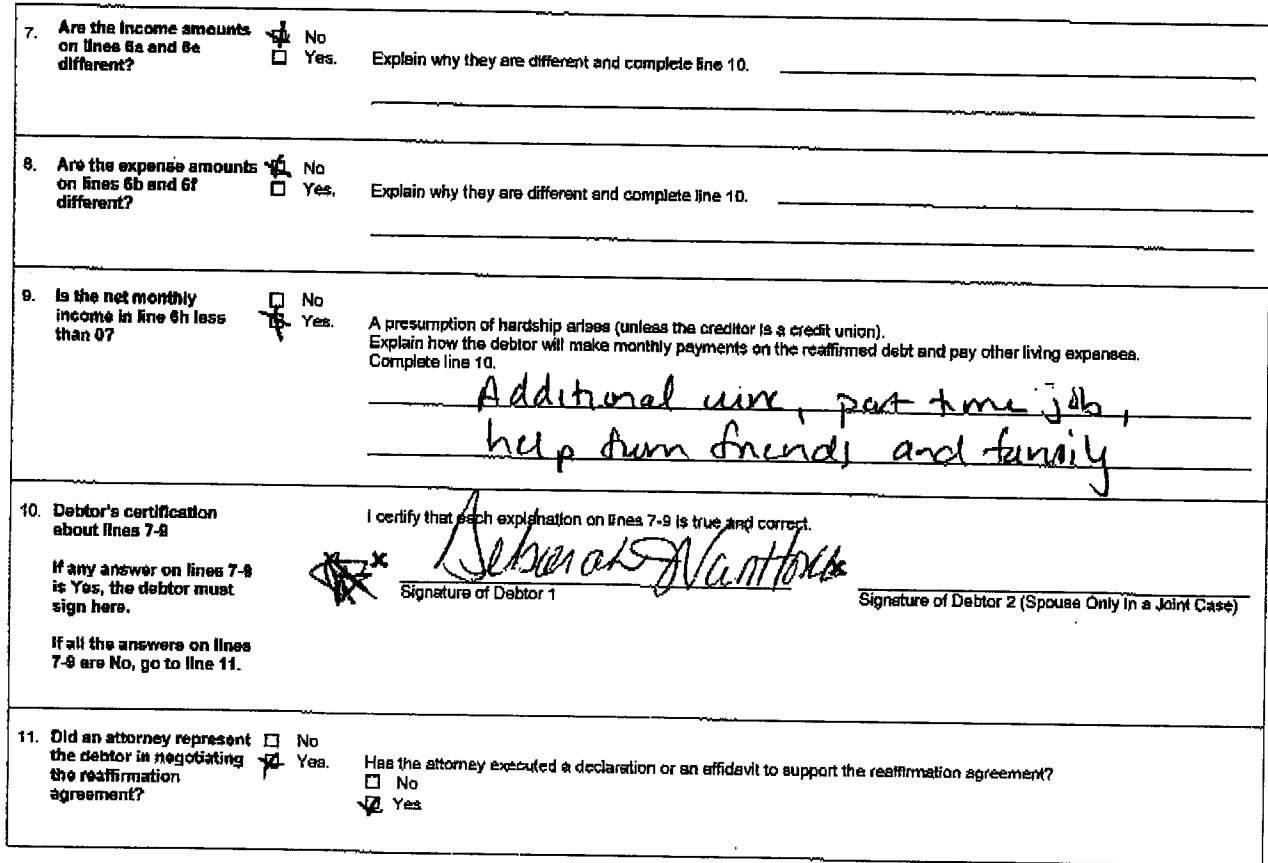 7. Are the income amounts on lines 6a and 6e different?
No
Yes. Explain why they are different and complete line 10.
8. Are the expense amounts on lines 6b and 6f different?
No
Yes. Explain why they are different and complete line 10.
9. Is the net monthly income in line 6h less than 0?
No
Yes. A presumption of hardship arises (unless the creditor is a credit union).
Explain how the debtor will make monthly payments on the reaffirmed debt and pay other living expenses.
Complete line 10.
Additional , part time job,
help from friends and family
10. Debtor's certification about lines 7-9
If any answer on lines 7-9 is Yes, the debtor must sign here.
If all the answers on lines 7-9 are No, go to line 11.
I certify that each explanation on lines 7-9 is true and correct.
x Deborah J x
Signature of Debtor 1
Signature of Debtor 2 (Spouse Only in a Joint Case)
11. Did an attorney represent the debtor in negotiating the reaffirmation agreement?
No
Yes. Has the attorney executed a declaration or an affidavit to support the reaffirmation agreement?
No
Yes